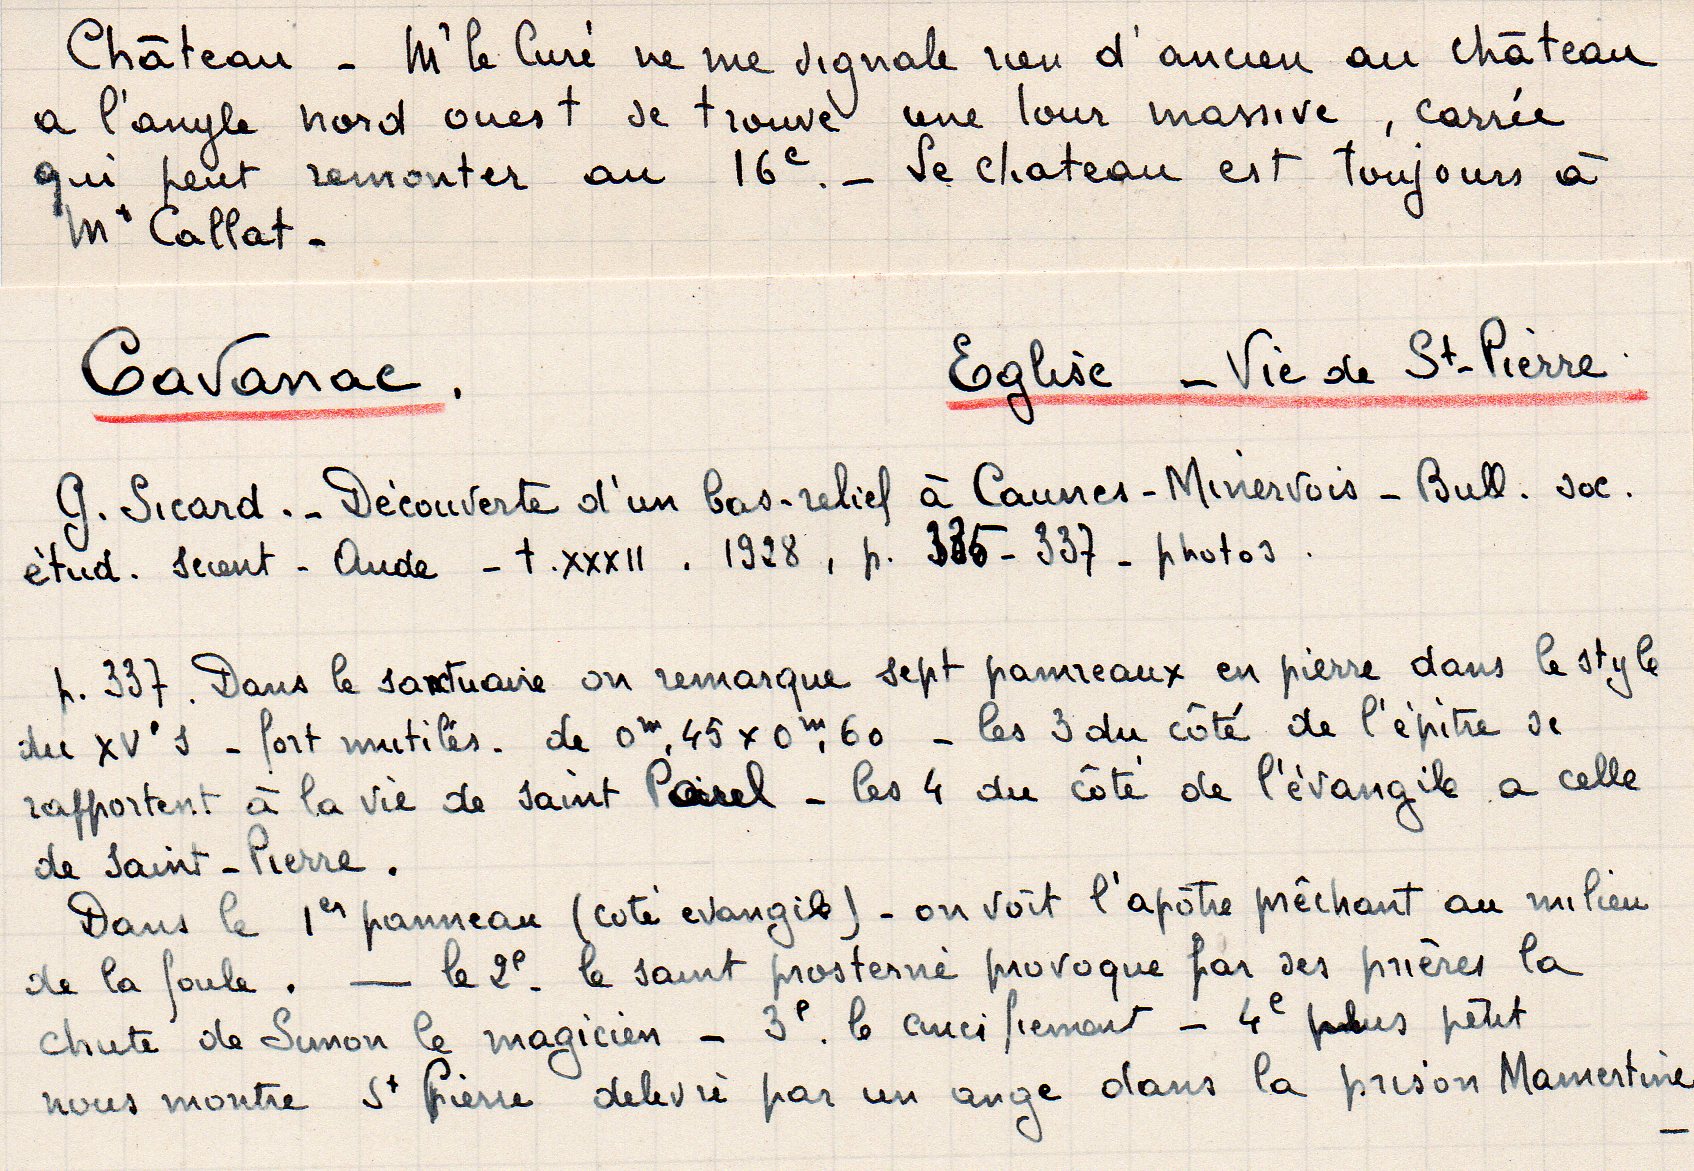 Château - Mr le Curé ne me signale rien d'ancien au château
a l'angle nord ouest se trouve une tour massive, carrée
qui peut remonter au 16e. - Le chateau est toujours à
Mr Callat -
Cavanac. Eglise - Vie de St-Pierre
G. Sicard. - Découverte d'un bas-relief à Caunes-Minervois - Bull. soc.
étud. scient - Aude - t. XXXII. 1928, p. 335-337 - photos.
p. 337. Dans le sanctuaire on remarque sept panneaux en pierre dans le style
du XVe s - fort mutilés. de 0m,45 x 0m,60 - les 3 du côté de l'épitre se
rapportent à la vie de saint - les 4 du côté de l'évangile a celle
de saint-Pierre.
Dans le 1er panneau (coté evangile) - on voit l'apôtre prêchant au milieu
de la foule. — le 2e - le saint prosterné provoque par ses prières la
chute de Simon le magicien - 3e. le crucifiement - 4e plus petit
nous montre St Pierre delevré par un ange dans la prison Mamertine
-